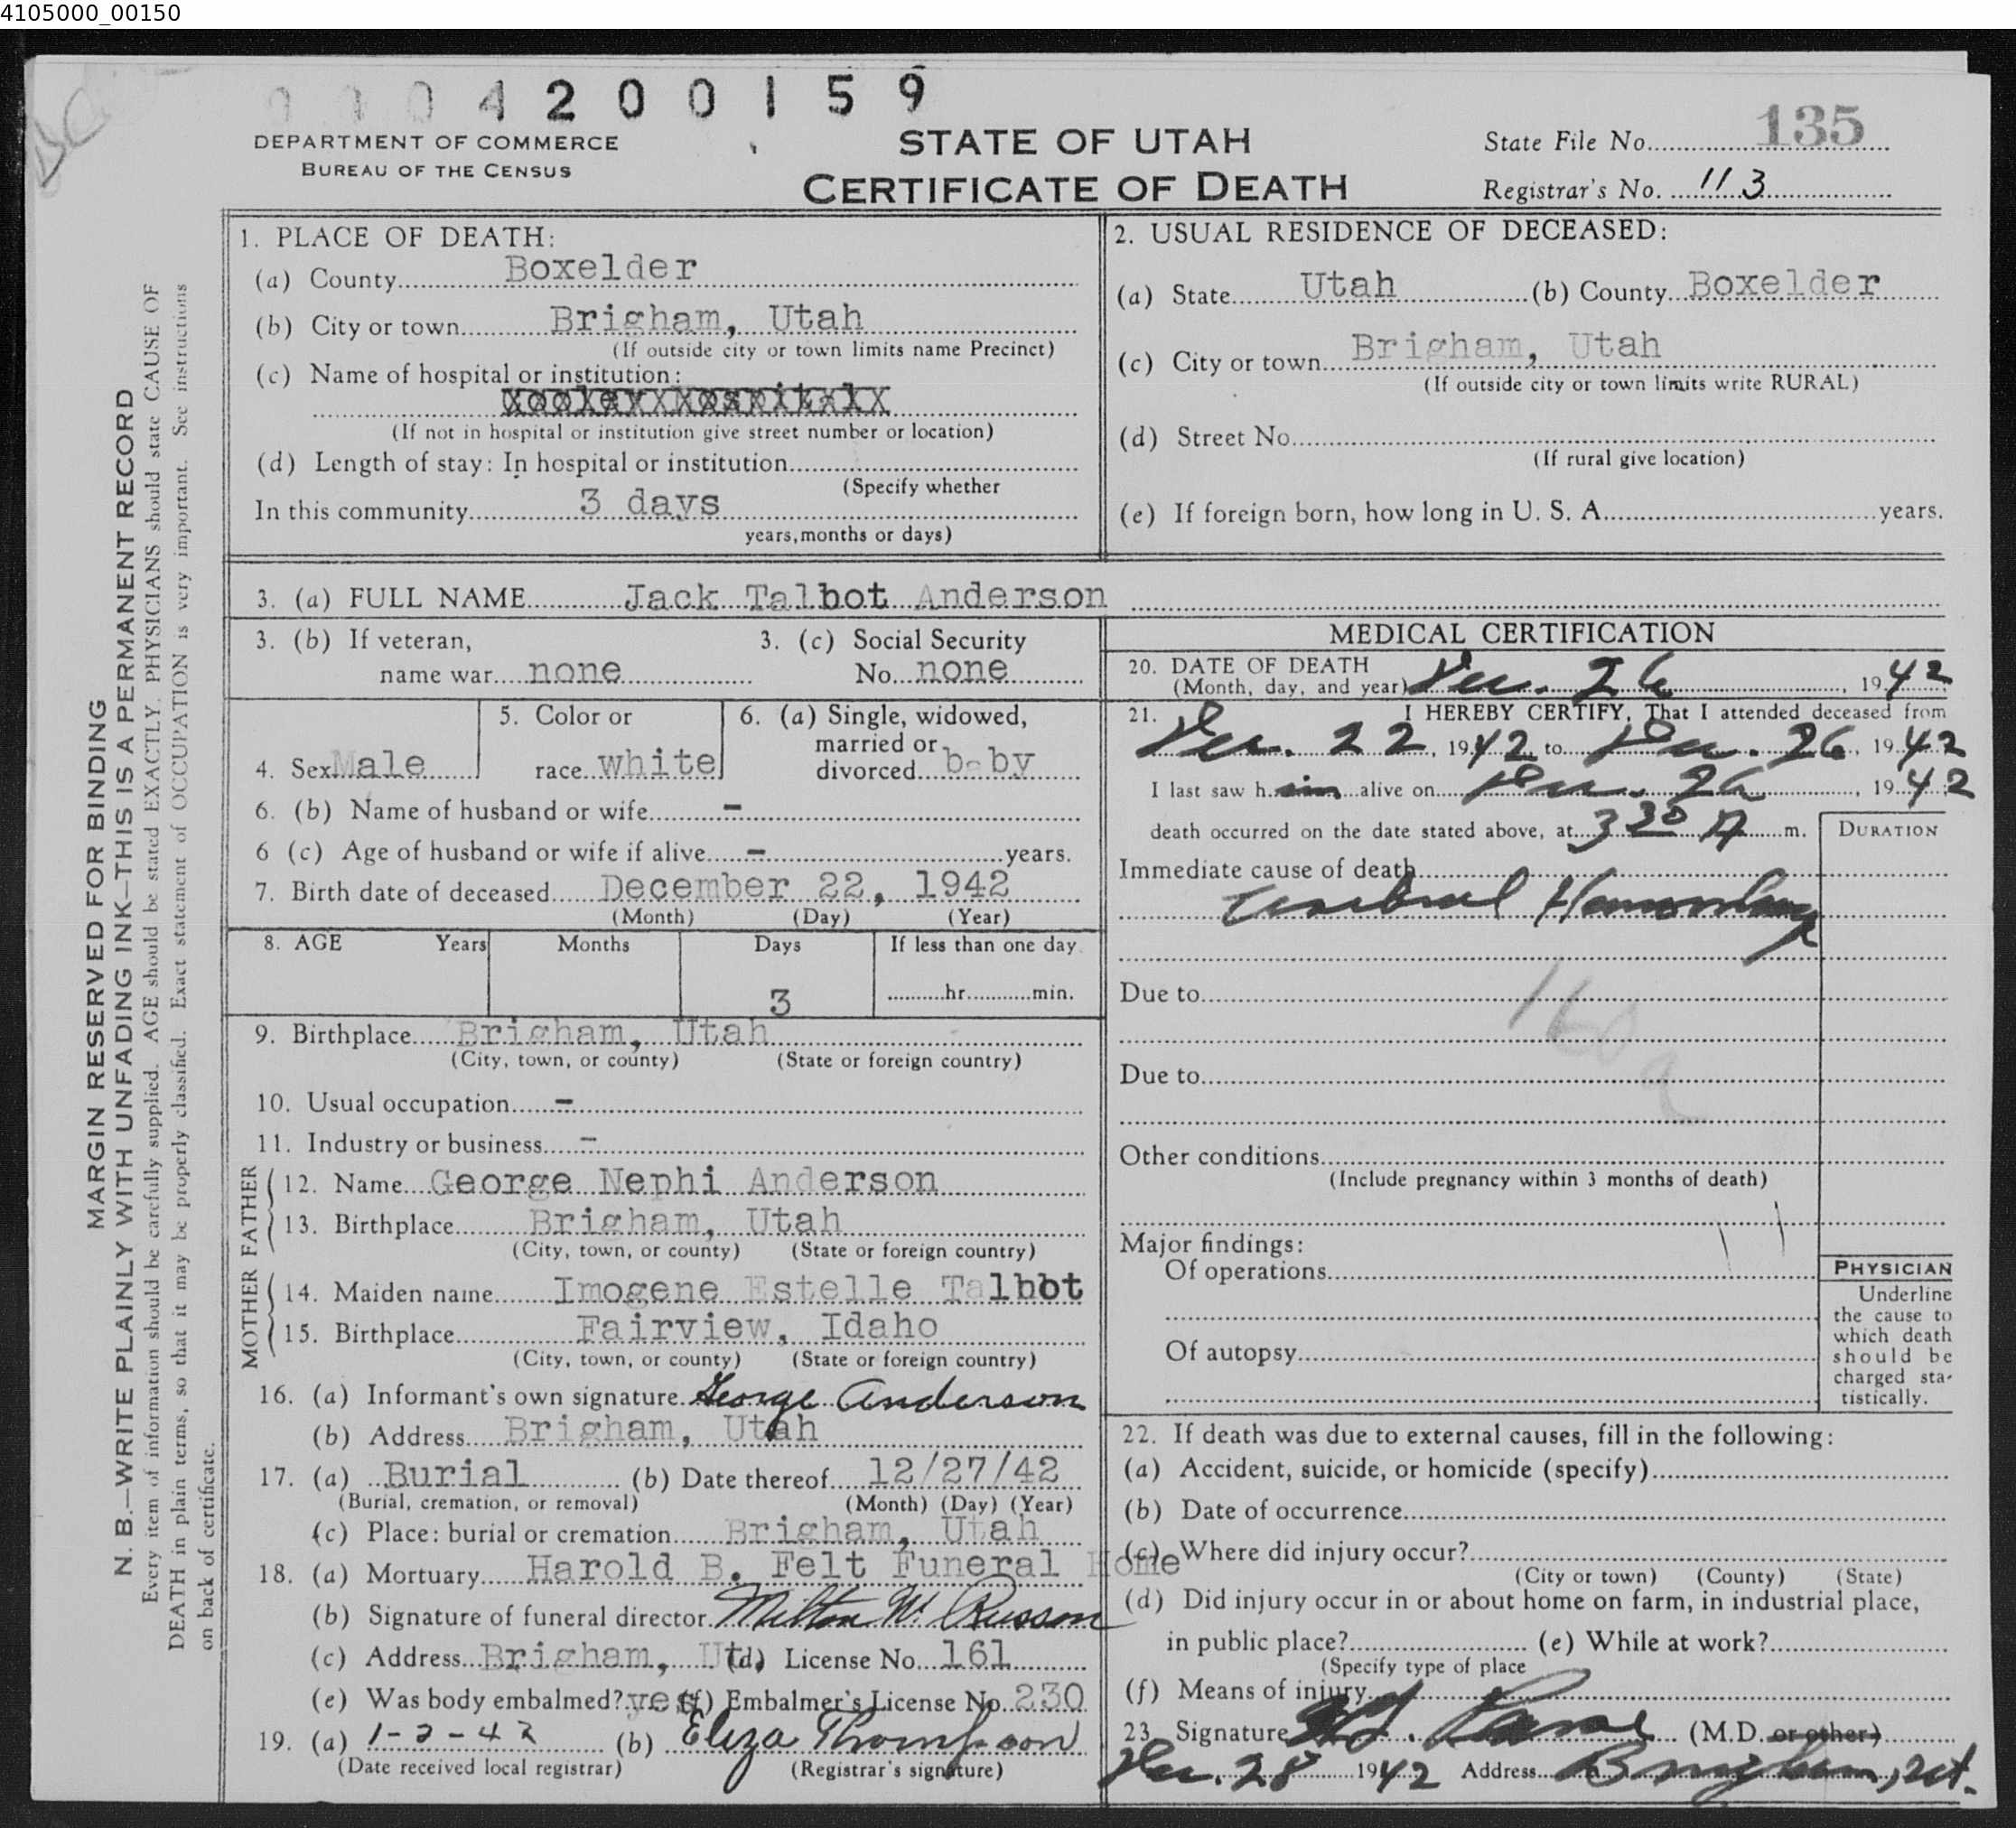 4105000_00150
0004200159
DEPARTMENT OF COMMERCE
BUREAU OF THE CENSUS
STATE OF UTAH
CERTIFICATE OF DEATH
State File No. 135
Registrar's No. 113
MARGIN RESERVED FOR BINDING
N. B.—WRITE PLAINLY WITH UNFADING INK—THIS IS A PERMANENT RECORD
Every item of information should be carefully supplied. AGE should be stated EXACTLY. PHYSICIANS should state CAUSE OF
DEATH in plain terms, so that it may be properly classified. Exact statement of OCCUPATION is very important. See instructions
on back of certificate.
1. PLACE OF DEATH:
(a) County Boxelder
(b) City or town Brigham, Utah
(If outside city or town limits name Precinct)
(c) Name of hospital or institution:
(If not in hospital or institution give street number or location)
(d) Length of stay: In hospital or institution
(Specify whether
In this community 3 days
years, months or days)
2. USUAL RESIDENCE OF DECEASED:
(a) State Utah (b) County Boxelder
(c) City or town Brigham, Utah
(If outside city or town limits write RURAL)
(d) Street No.
(If rural give location)
(e) If foreign born, how long in U. S. A. years.
3. (a) FULL NAME Jack Talbot Anderson
3. (b) If veteran,
name war none
3. (c) Social Security
No. none
4. Sex Male
5. Color or
race white
6. (a) Single, widowed,
married or
divorced baby
6. (b) Name of husband or wife –
6 (c) Age of husband or wife if alive – years.
7. Birth date of deceased December 22, 1942
(Month) (Day) (Year)
8. AGE Years Months Days If less than one day
3 hr. min.
9. Birthplace Brigham, Utah
(City, town, or county) (State or foreign country)
10. Usual occupation –
11. Industry or business –
FATHER
12. Name George Nephi Anderson
13. Birthplace Brigham, Utah
(City, town, or county) (State or foreign country)
MOTHER
14. Maiden name Imogene Estelle Talbot
15. Birthplace Fairview, Idaho
(City, town, or county) (State or foreign country)
16. (a) Informant's own signature George Anderson
(b) Address Brigham, Utah
17. (a) Burial (b) Date thereof 12/27/42
(Burial, cremation, or removal) (Month) (Day) (Year)
(c) Place: burial or cremation Brigham, Utah
18. (a) Mortuary Harold B. Felt Funeral Home
(b) Signature of funeral director Milton W. Russon
(c) Address Brigham, Ut. (d) License No. 161
(e) Was body embalmed? yes (f) Embalmer's License No. 230
19. (a) 1-2-42 (b) Eliza Thompson
(Date received local registrar) (Registrar's signature)
MEDICAL CERTIFICATION
20. DATE OF DEATH
(Month, day, and year) Dec. 26, 1942
21. I HEREBY CERTIFY, That I attended deceased from
Dec. 22, 1942 to Dec. 26, 1942
I last saw him alive on Dec. 26, 1942
death occurred on the date stated above, at 3 30 A m.
DURATION
Immediate cause of death
Cerebral Hemorrhage
Due to
160a
Due to
Other conditions
(Include pregnancy within 3 months of death)
Major findings:
Of operations
Of autopsy
PHYSICIAN
Underline
the cause to
which death
should be
charged sta-
tistically.
22. If death was due to external causes, fill in the following:
(a) Accident, suicide, or homicide (specify)
(b) Date of occurrence
(c) Where did injury occur?
(City or town) (County) (State)
(d) Did injury occur in or about home on farm, in industrial place,
in public place? (e) While at work?
(Specify type of place
(f) Means of injury
23. Signature (M.D. or other)
Dec. 28 1942 Address Brigham, Ut.